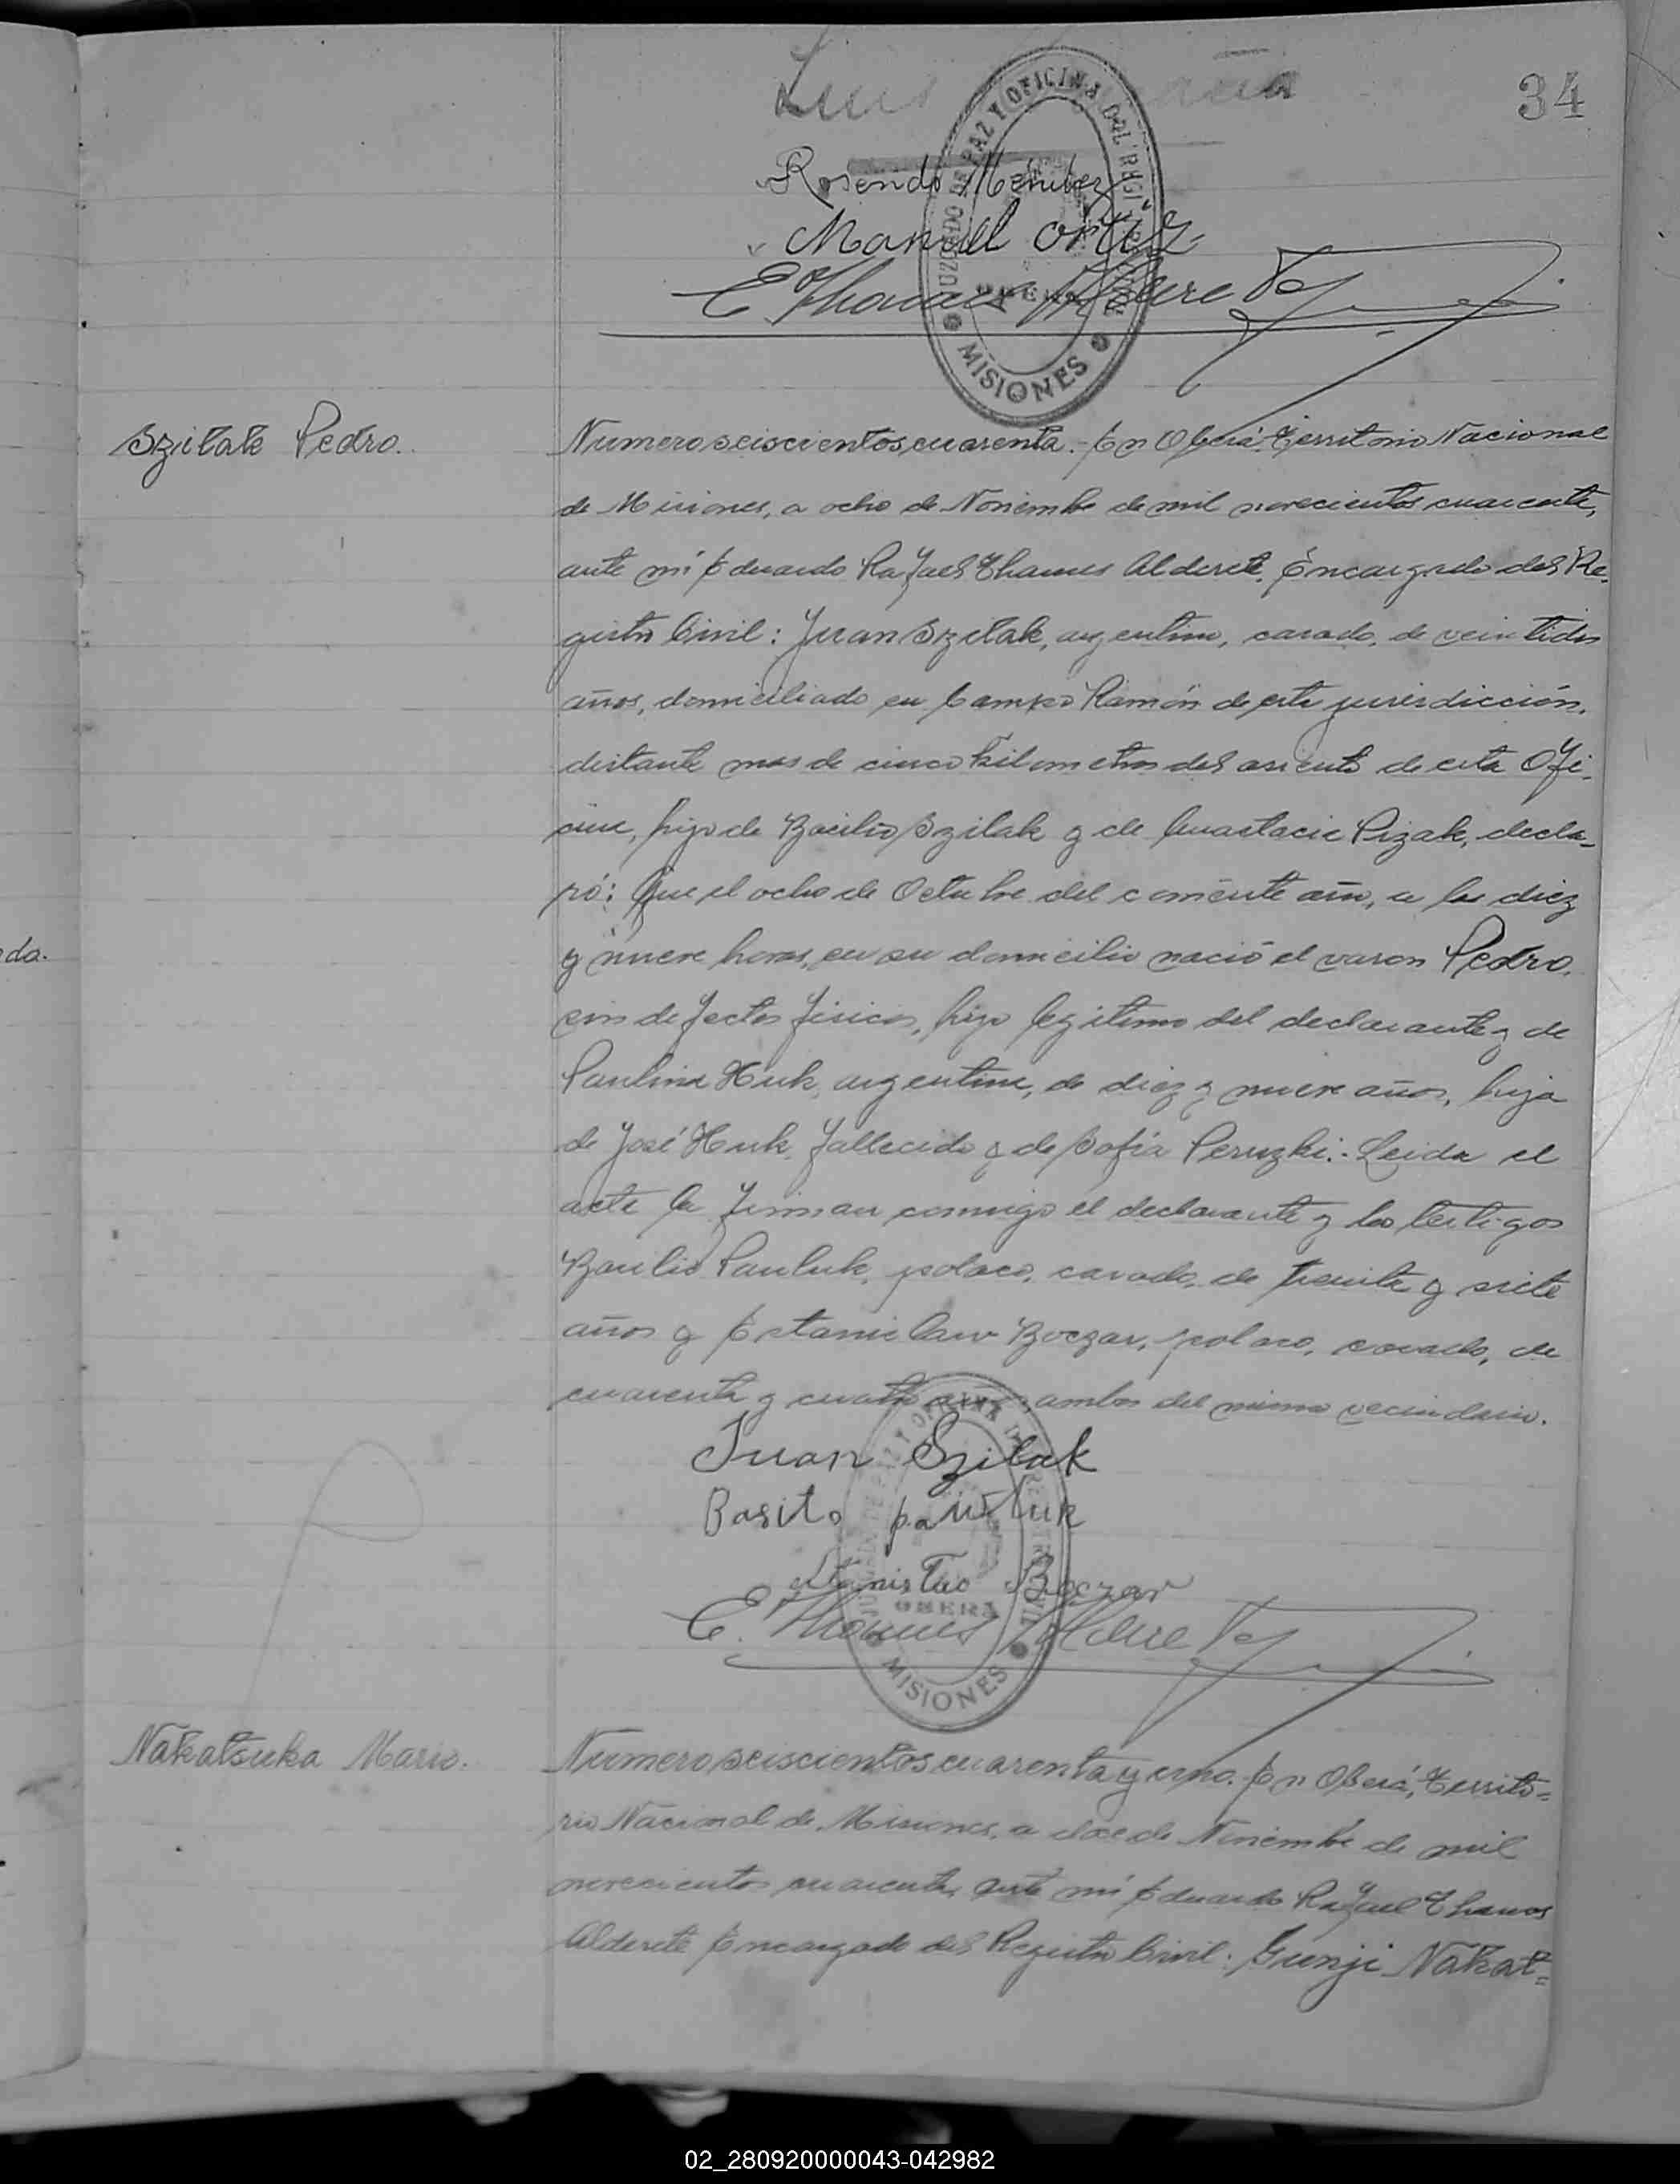 34
Luis
Rosendo Mendez
Manuel Ortiz
E. Thames Alderete
JUZGADO DE PAZ Y OFICINA DEL REGISTRO CIVIL
OBERÁ
MISIONES
Szilak Pedro.
Numero seiscientos cuarenta.- En Oberá, Territorio Nacional
de Misiones, a ocho de Noviembre de mil novecientos cuarenta,
ante mí Eduardo Rafael Thames Alderete, Encargado del Re-
gistro Civil: Juan Szilak, argentino, casado, de veintidos
años, domiciliado en Campo Ramón de esta jurisdicción,
distante mas de cinco kilometros del asiento de esta Ofi-
cina, hijo de Basilio Szilak y de Anastacia Pizak, decla-
ró: Que el ocho de Octubre del corriente año, a las diez
y nueve horas, en su domicilio nació el varon Pedro,
sin defectos fisicos, hijo legitimo del declarante y de
Paulina Huk, argentina, de diez y nueve años, hija
de José Huk, fallecido y de Sofía Peruzki.- Leida el
acta la firman conmigo el declarante y los testigos
Basilio Pauluk, polaco, casado, de treinta y siete
años y Estanislaw Boczar, polaco, casado, de
cuarenta y cuatro años, ambos del mismo vecindario.
Juan Szilak
Basilo pauluk
Boczar
E. Thames Alderete
OBERÁ
MISIONES
Nakatsuka Mario.
Numero seiscientos cuarenta y uno. En Oberá, Territo=
rio Nacional de Misiones, a doce de Noviembre de mil
novecientos cuarenta, ante mí Eduardo Rafael Thames
Alderete Encargado del Registro Civil: Gunji Nakat=
da.
02_280920000043-042982